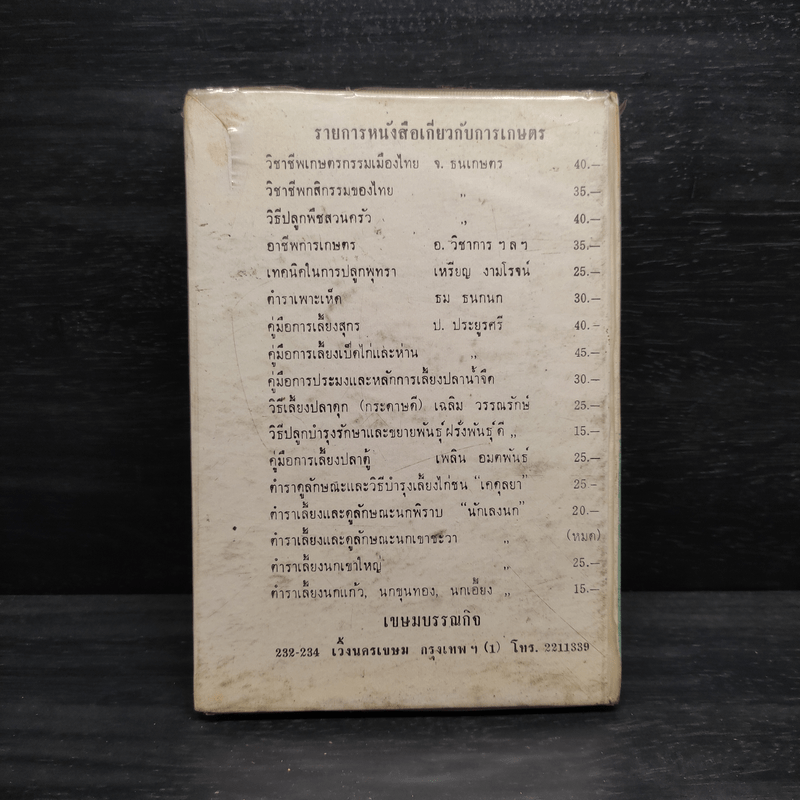 รายการหนังสือเกี่ยวกับการเกษตร
วิชาชีพเกษตรกรรมเมืองไทย จ. ธนเกษตร 40.—
วิชาชีพกสิกรรมของไทย „ 35.—
วิธีปลูกพืชสวนครัว „ 40.—
อาชีพการเกษตร อ. วิชาการ ฯลฯ 35.—
เทคนิคในการปลูกพุทรา เหรียญ งามโรจน์ 25.—
ตำราเพาะเห็ด ธม ธนกนก 30.—
คู่มือการเลี้ยงสุกร ป. ประยูรศรี 40.–
คู่มือการเลี้ยงเป็ดไก่และห่าน „ 45.—
คู่มือการประมงและหลักการเลี้ยงปลาน้ำจืด 30.—
วิธีเลี้ยงปลาดุก (กระดาษดี) เฉลิม วรรณรักษ์ 25.—
วิธีปลูกบำรุงรักษาและขยายพันธุ์ฝรั่งพันธุ์ดี „ 15.—
คู่มือการเลี้ยงปลาตู้ เพลิน อมตพันธ์ 25.—
ตำราดูลักษณะและวิธีบำรุงเลี้ยงไก่ชน “เคตุลยา” 25.–
ตำราเลี้ยงและดูลักษณะนกพิราบ “นักเลงนก” 20.—
ตำราเลี้ยงและดูลักษณะนกเขาชะวา „ (หมด)
ตำราเลี้ยงนกเขาใหญ่ „ 25.—
ตำราเลี้ยงนกแก้ว, นกขุนทอง, นกเอี้ยง „ 15.—
เขษมบรรณกิจ
232-234 เวิ้งนครเขษม กรุงเทพฯ (1) โทร. 2211339